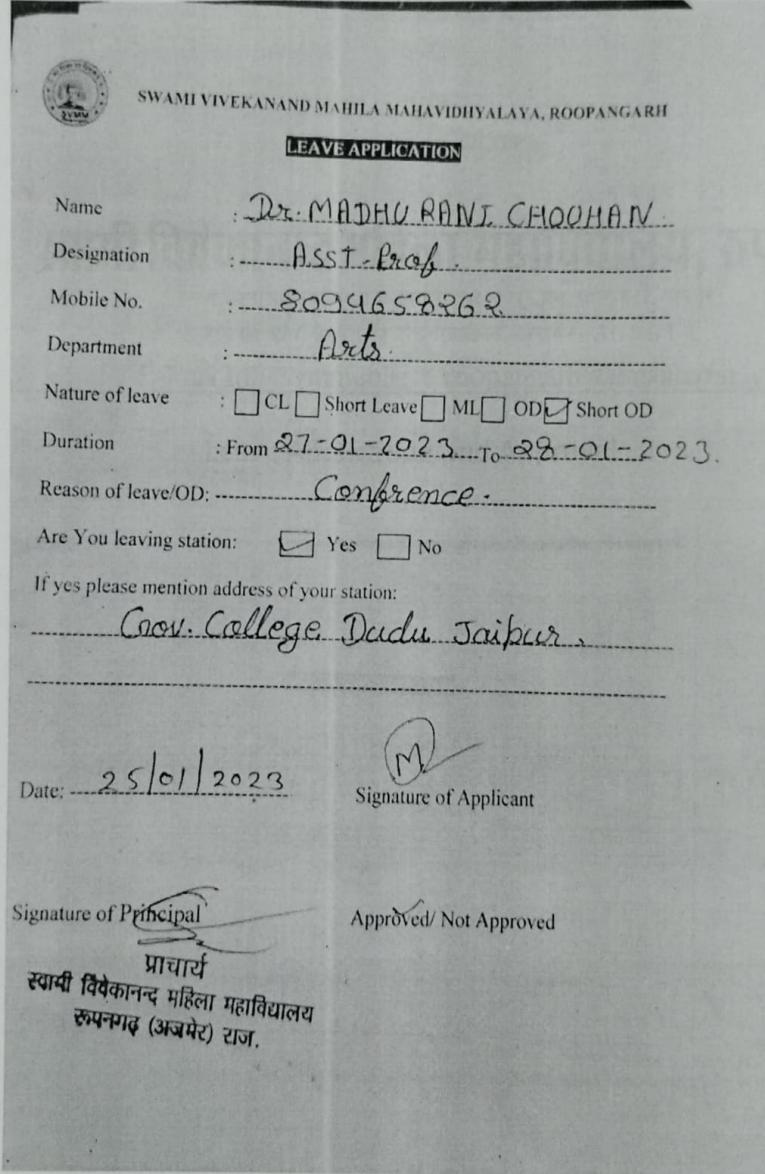 SVMM
SWAMI VIVEKANAND MAHILA MAHAVIDHYALAYA, ROOPANGARH
LEAVE APPLICATION
Name : Dr. MADHU RANI CHOUHAN
Designation : Asst-Prof.
Mobile No. : 8094658262
Department : Arts.
Nature of leave : CL Short Leave ML OD Short OD
Duration : From 27-01-2023 To 28-01-2023.
Reason of leave/OD: Confrence.
Are You leaving station: Yes No
If yes please mention address of your station:
Gov. College Dudu Jaipur.
Date: 25/01/2023
Signature of Applicant
Signature of Principal Approved/ Not Approved
प्राचार्य
स्वामी विवेकानन्द महिला महाविद्यालय
रूपनगढ़ (अजमेर) राज.